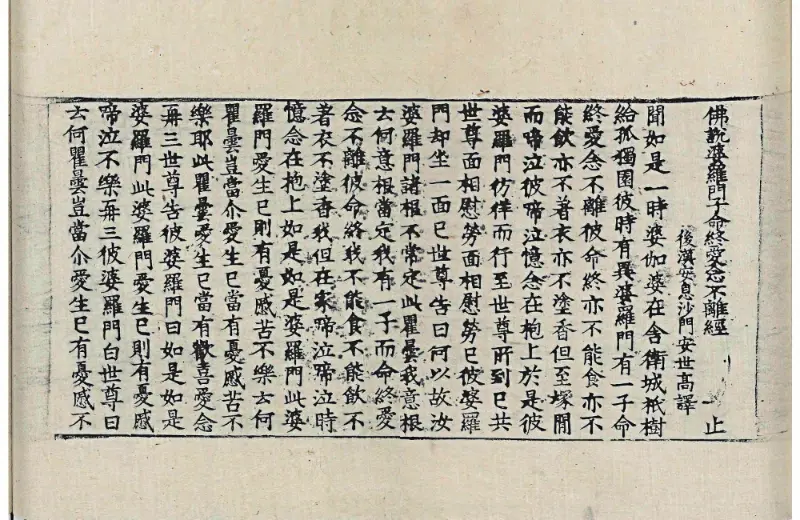 佛說婆羅門子命終愛念不離經 止
後漢安息沙門安世高譯
聞如是一時婆伽婆在舍衛城祇樹
給孤獨園彼時有異婆羅門有一子命
終愛念不離彼命終亦不能食亦不
能飲亦不著衣亦不塗香但至塚間
而啼泣彼啼泣憶念在抱上於是彼
婆羅門彷徉而行至世尊所到已共
世尊面相慰勞面相慰勞已彼婆羅
門却坐一面已世尊告曰何以故汝
婆羅門諸根不常定此瞿曇我意根
云何意根當定我有一子而命終愛
念不離彼命終我不能食不能飲不
著衣不塗香我但在家啼泣啼泣時
憶念在抱上如是如是婆羅門此婆
羅門愛生已則有憂慼苦不樂云何
瞿曇豈當尒愛生已當有憂慼苦不
樂耶此瞿曇愛生已當有歡喜愛念
再三世尊告彼婆羅門曰如是如是
婆羅門此婆羅門愛生已則有憂慼
啼泣不樂再三彼婆羅門白世尊曰
云何瞿曇豈當尒愛生已有憂慼不